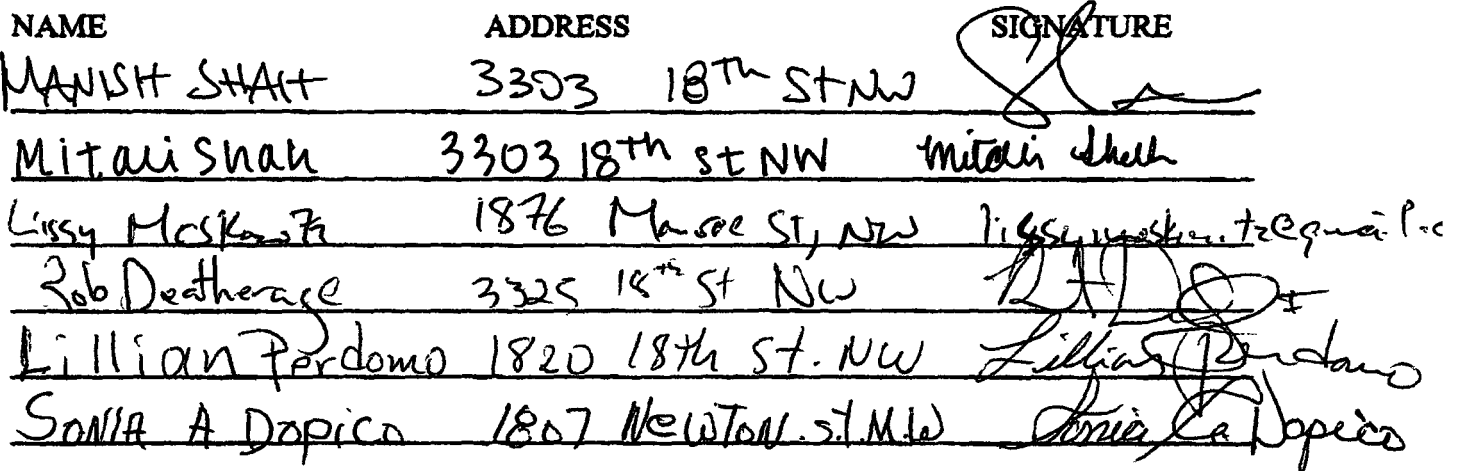 NAME ADDRESS SIGNATURE
MANISH SHAH 3303 18TH St NW
Mitali Shah 3303 18th St NW Mitali Shah
Lissy Moskowitz 1876 Monroe St, NW
Rob Deatherage 3325 18th St NW
Lillian Perdomo 1820 18th St. NW Lillian Perdomo
SONIA A Dopico 1807 NEWTON.st.N.W Sonia A Dopico